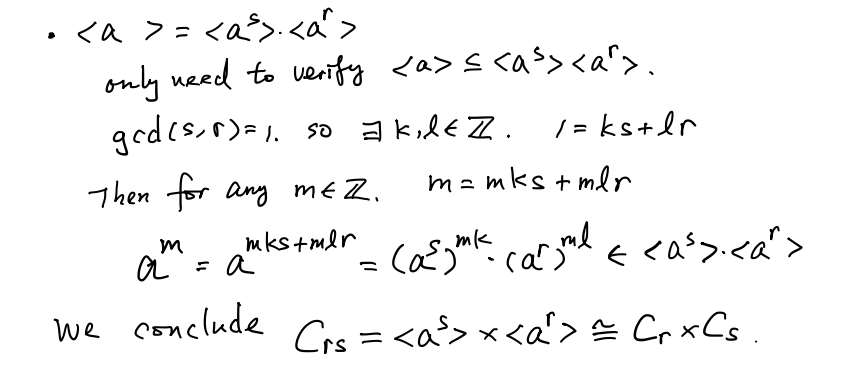 • <a> = <aˢ>·<aʳ>
only need to verify <a> ≤ <aˢ><aʳ>.
gcd(s,r)=1. so ∃ k,l∈ℤ. 1=ks+lr
Then for any m∈ℤ. m=mks+mlr
a^m = a^{mks+mlr} = (aˢ)^{mk}·(aʳ)^{ml} ∈ <aˢ>·<aʳ>
We conclude C_{rs} = <aˢ> × <aʳ> ≅ C_r × C_s.